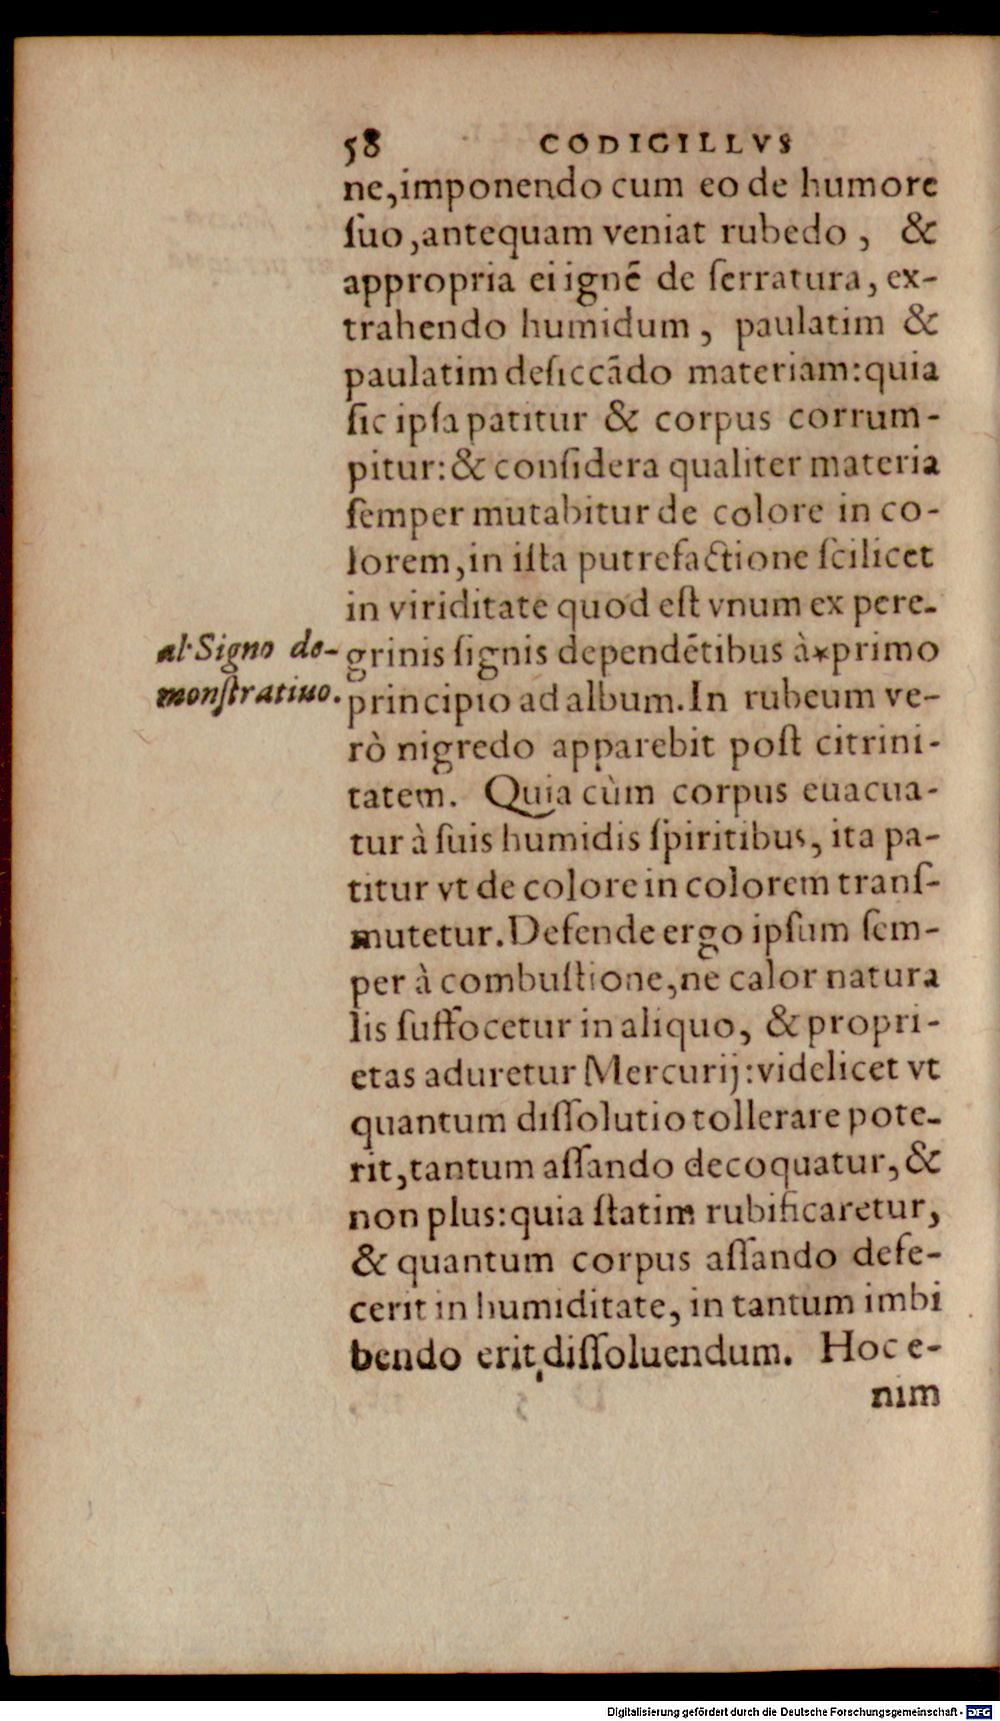 58 CODICILLVS
ne,imponendo cum eo de humore
ſuo,antequam veniat rubedo, &
appropria ei ignẽ de ſerratura, ex-
trahendo humidum, paulatim &
paulatim deſiccãdo materiam:quia
ſic ipſa patitur & corpus corrum-
pitur:& conſidera qualiter materia
ſemper mutabitur de colore in co-
lorem,in iſta putrefactione ſcilicet
in viriditate quod eſt vnum ex pere-
grinis ſignis dependẽtibus à*primo
al. Signo de-
monſtratiuo.
principio ad album. In rubeum ve-
rò nigredo apparebit poſt citrini-
tatem. Quia cùm corpus euacua-
tur à ſuis humidis ſpiritibus, ita pa-
titur vt de colore in colorem tranſ-
mutetur. Defende ergo ipſum ſem-
per à combuſtione,ne calor natura
lis ſuffocetur in aliquo, & propri-
etas aduretur Mercurij:videlicet vt
quantum diſſolutio tollerare pote-
rit,tantum aſſando decoquatur, &
non plus:quia ſtatim rubificaretur,
& quantum corpus aſſando defe-
cerit in humiditate, in tantum imbi
bendo erit diſſoluendum. Hoc e-
nim
Digitalisierung gefördert durch die Deutsche Forschungsgemeinschaft - DFG